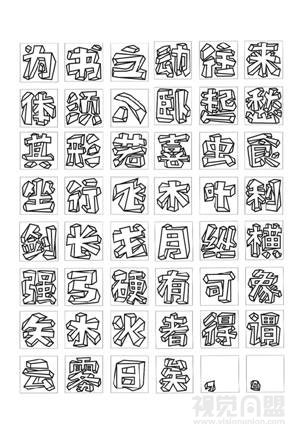 为书之动往来
体须入卧起愁
其形若喜虫食
坐行飞木叶利
剑长戈月纵横
强弓硬有可象
矢水火者得谓
云雾日矣
视觉同盟
www.visionunion.com